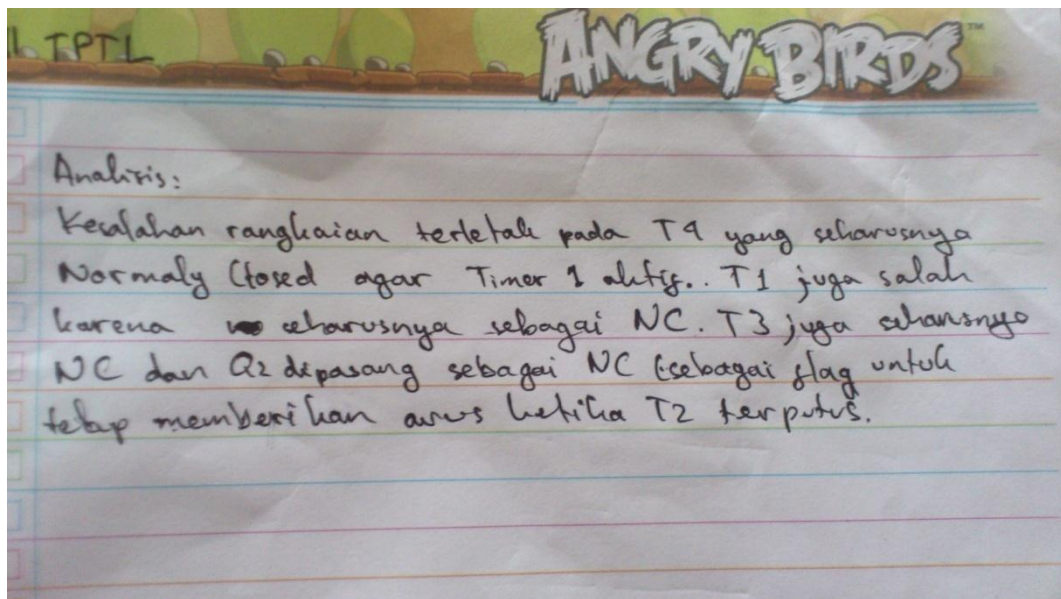 TPTL
ANGRY BIRDS™
Analisis:
Kesalahan rangkaian terletak pada T4 yang seharusnya
Normaly Closed agar Timer 1 aktif.. T1 juga salah
karena seharusnya sebagai NC. T3 juga seharusnya
NC dan Q2 dipasang sebagai NC (sebagai flag untuk
tetap memberikan arus ketika T2 terputus.